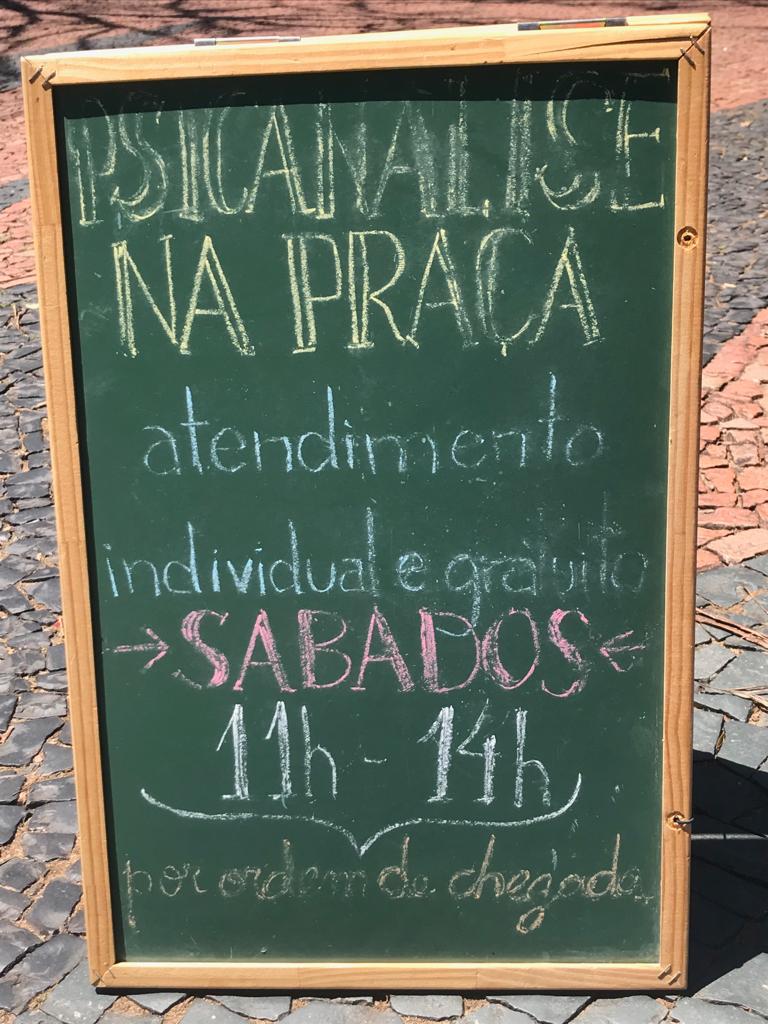 PSICANALISE
NA PRAÇA
atendimento
individual e gratuito
→ SABADOS ←
11h - 14h
por ordem de chegada